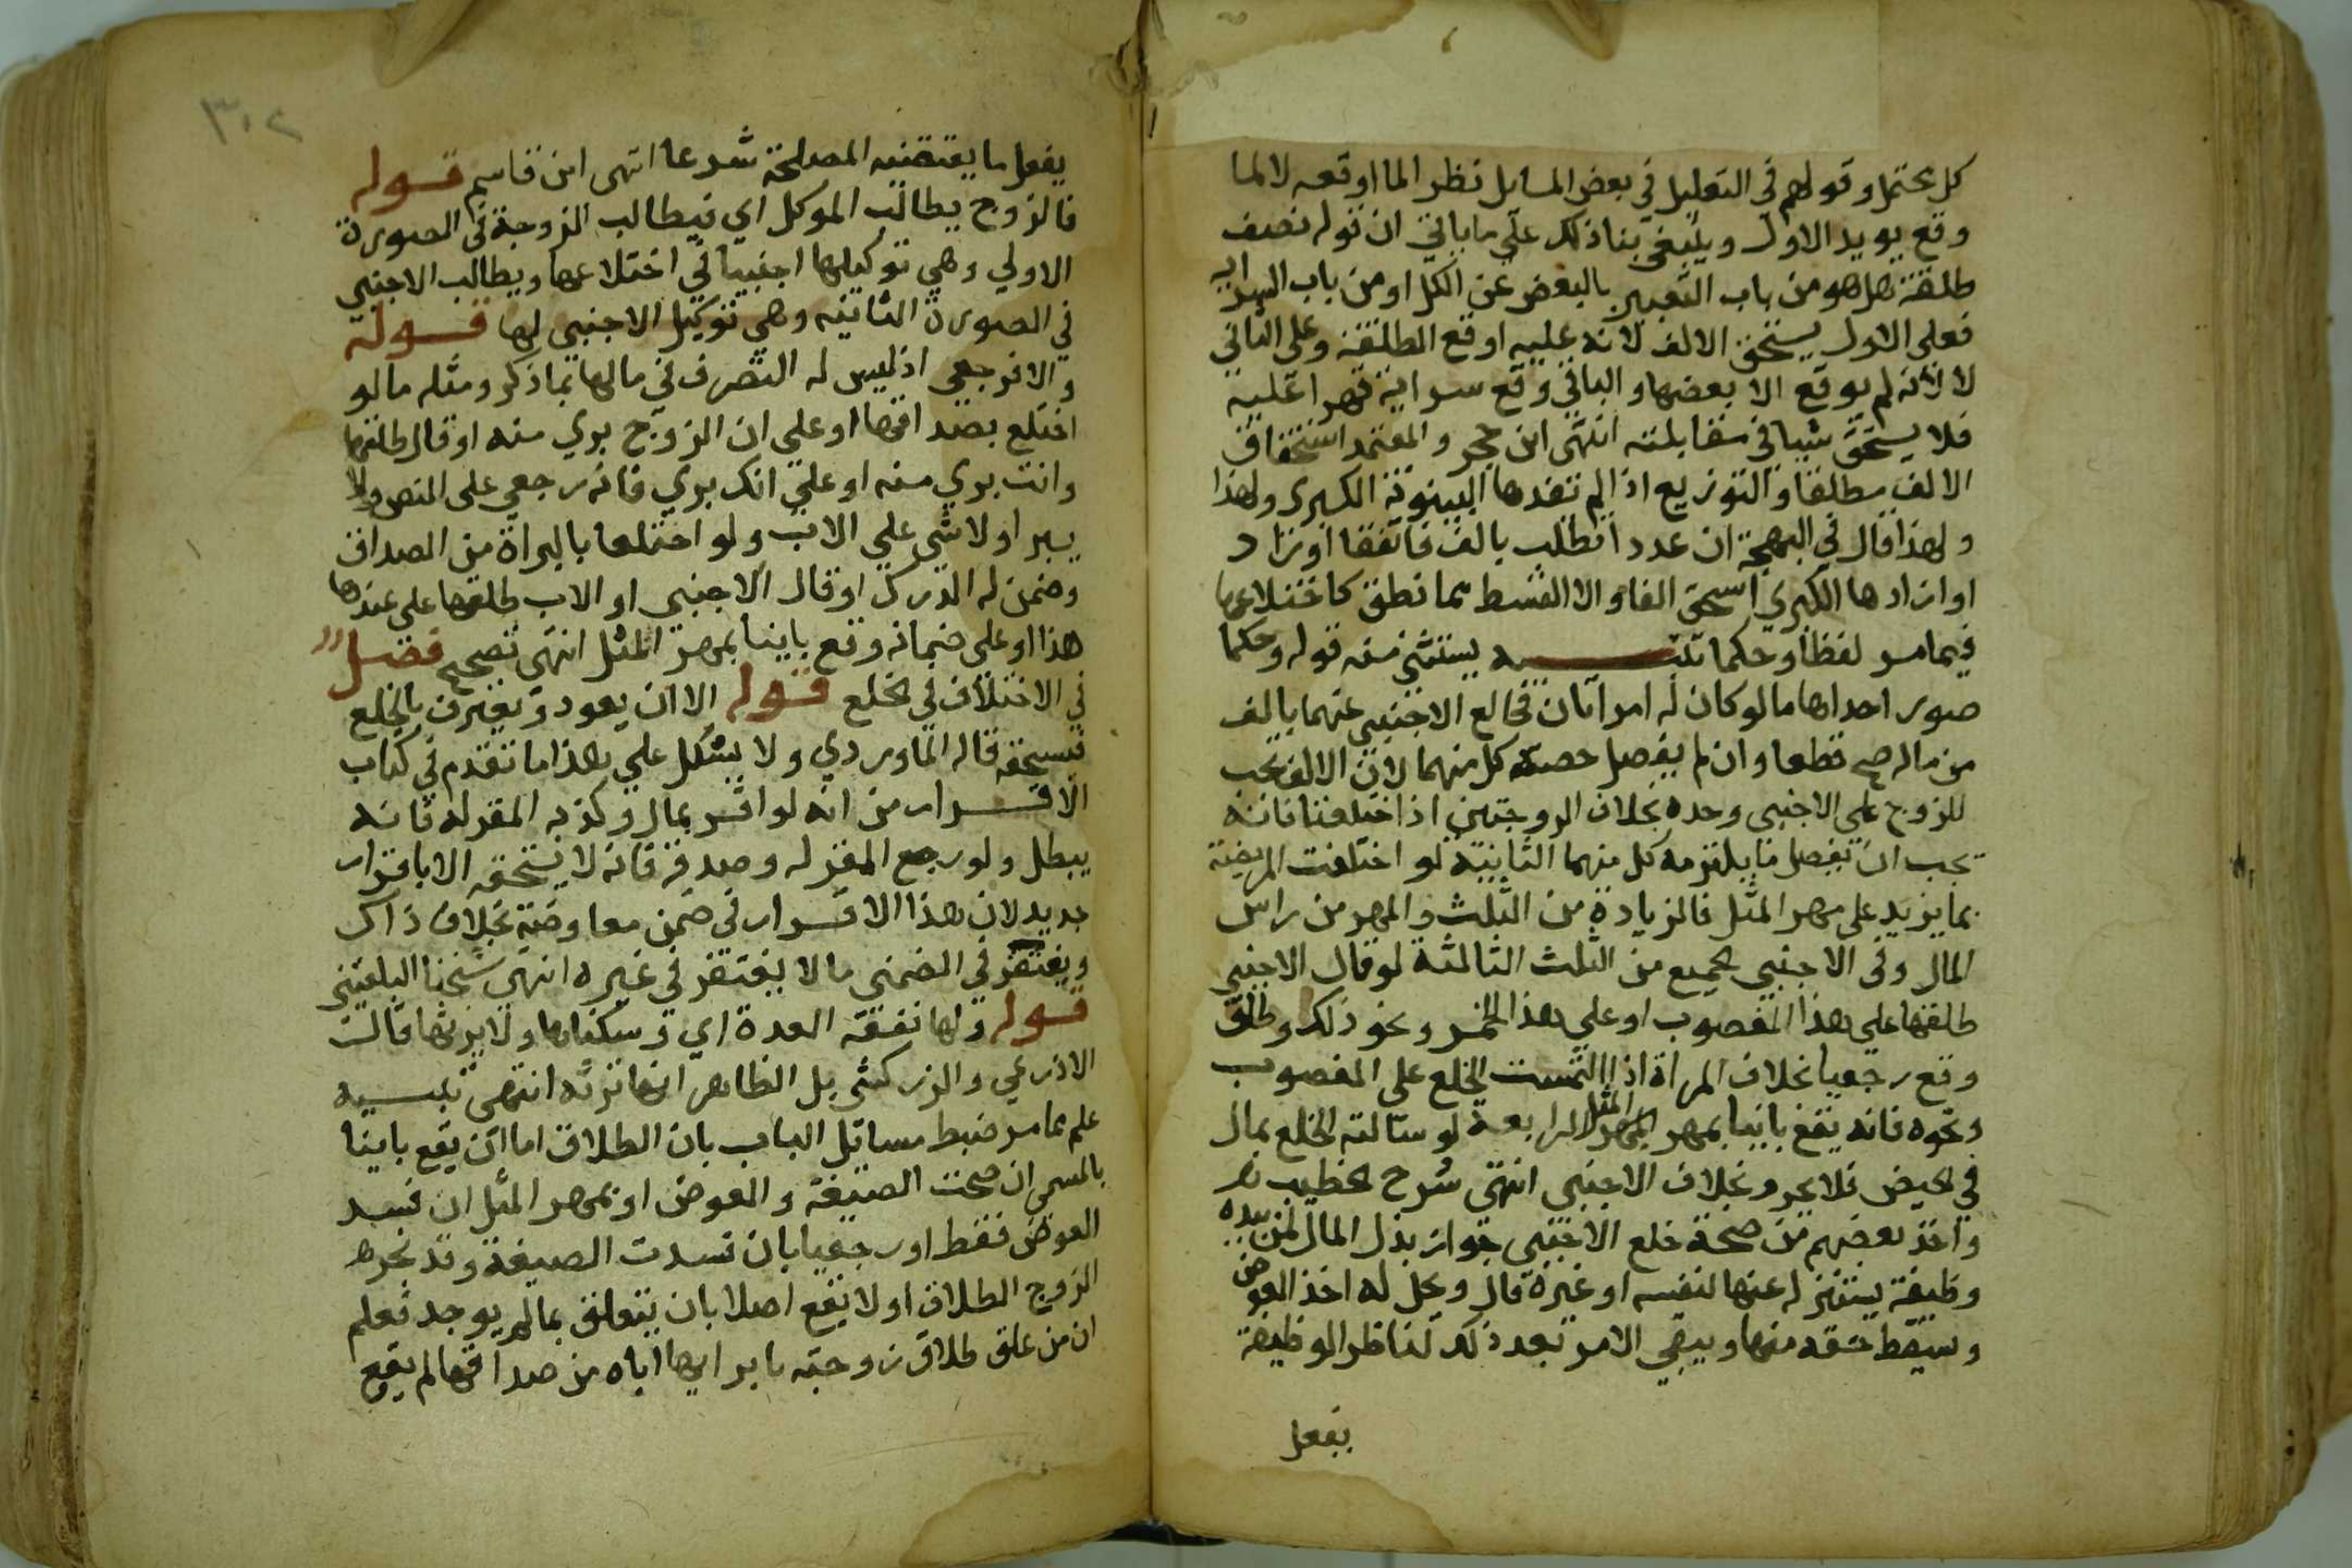 كل محتمل وقولهم في التعليل في بعض المسايل نظر الما اوقعه لا لما
وقع يويد الاول وينبغي بنا ذلك علي ما ياتي ان قوله نصف
طلقة هل هو من باب التعبير بالبعض عن الكل او من باب السراية
فعلي الاول يستحق الالف لانه عليه اوقع الطلقة وعلي الثاني
لا لانه لم يوقع الا بعضها والباقي وقع سراية قهرا عليه
فلا يستحق شيا في مقابلته انتهي ابن حجر والمعتمد استحقاق
الالف مطلقا والتوزيع اذا لم تفدها البينونة الكبري ولهذا
ولهذا قال في البهجة ان عددا تطلب بالف فاتفقا او زاد
او افادها الكبري استحق الفا والا القسط مما نطق كاختلاعها
فيما مر لفظا وحكما تنبيه يستثني منه قوله وحكما
صور احداها ما لو كان له امراتان فخالع الاجنبي عنهما بالف
من ماله صح قطعا وان لم يفصل حصة كل منهما لان الالف تجب
للزوج علي الاجنبي وحده بخلاف الزوجتين اذا اختلعتا فانه
يجب ان يفصل ما يلتزمه كل منهما الثانية لو اختلعت المريضة
بما يزيد علي مهر المثل فالزيادة من الثلث والمهر من راس
المال وفي الاجنبي الجميع من الثلث الثالثة لو قال الاجنبي
طلقها علي هذا المغصوب او علي هذا الخمر ونحو ذلك وطلق
وقع رجعيا بخلاف المراة اذا التمست الخلع علي المغصوب
ونحوه فانه يقع باينا بمهر المثل الرابعة لو سالته الخلع بمال
في الحيض فلا يحرم بخلاف الاجنبي انتهي شرح الخطيب
واخذ بعضهم من صحة خلع الاجنبي جواز بذل المال لمن بيده
وظيفة يستنزله عنها لنفسه او غيره قال ويحل له اخذ العوض
ويسقط حقه منها ويبقي الامر بعد ذلك لناظر الوظيفة
يفعل
٣٠٢
يفعل ما يقتضيه المصلحة شرعا انتهي ابن قاسم قوله
فالزوج يطالب الموكل اي فيطالب الزوجة في الصورة
الاولي وهي توكيلها اجنبيا في اختلاعها ويطالب الاجنبي
في الصورة الثانية وهي توكيل الاجنبي لها قوله
والا فرجعي اذ ليس له التصرف في مالها بما ذكر ومثله ما لو
اختلع بصداقها او علي ان الزوج بري منه او قال طلقها
وانت بري منه او علي انك بري فانه رجعي علي النص ولا
يبرا ولا شي علي الاب ولو اختلعا بالبراة من الصداق
وضمن له الدرك او قال الاجنبي او الاب طلقها علي عبدها
هذا او علي ضمانه وقع باينا بمهر المثل انتهي تصحيح فصل
في الاختلاف في الخلع قوله الا ان يعود ويعترف بالخلع
فيستحقه قاله الماوردي ولا يشكل علي هذا ما تقدم في كتاب
الاقرار من انه لو اقر بمال وكذبه المقر له فانه
يبطل ولو رجع المقر له وصدقه فانه لا يستحقه الا باقرار
جديد لان هذا الاقرار في ضمن معاوضة بخلاف ذاك
ويغتفر في الضمني ما لا يغتفر في غيره انتهي شيخنا البلقيني
قوله ولها نفقة العدة اي وسكناها ولا يرثها قالت
الاذرعي والزركشي بل الظاهر انها ترثه انتهي تنبيه
علم مما مر ضبط مسايل الباب بان الطلاق اما ان يقع باينا
بالمسمي ان صحت الصيغة والعوض او بمهر المثل ان فسد
العوض فقط او رجعيا بان فسدت الصيغة وقد نجز
الزوج الطلاق او لا يقع اصلا بان يتعلق بما لم يوجد فعلم
ان من علق طلاق زوجته بابرايها اياه من صداقها لم يقع